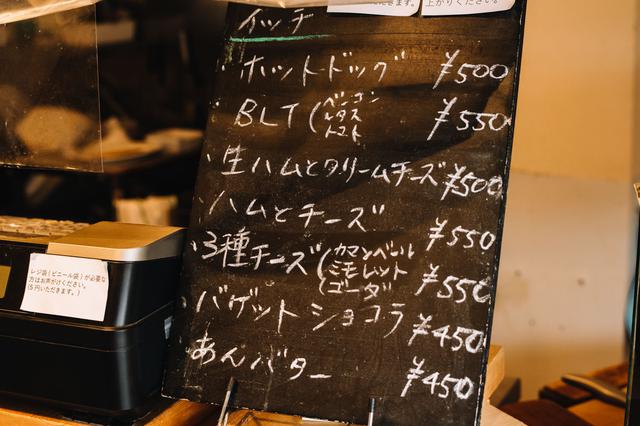 きます。
上がりください。
イッチ
・ホットドッグ ¥500
・BLT(ベーコン レタス トマト ¥550
・生ハムとクリームチーズ ¥500
・ハムとチーズ ¥550
・3種チーズ(カマンベール ミモレット ゴーダ ¥550
・バゲットショコラ ¥450
・あんバター ¥450
レジ袋(ビニール袋)が必要な
方はお声がけください。
(5円いただきます。)